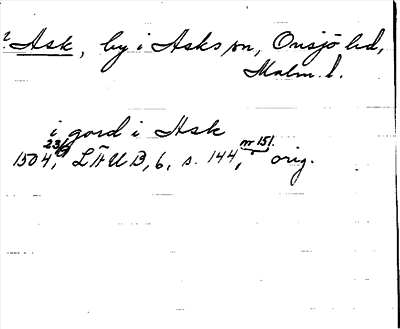 ? Ask, by i Asks sn, Onsjö hd,
Malm. l.
i gord i Ask
1504, 23/9, LÄUB, 6, s. 144, nr 151. orig.